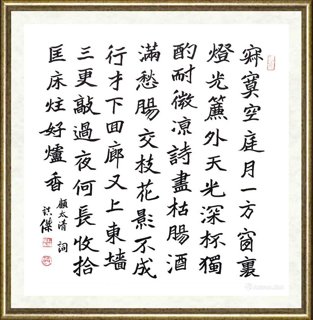 寂寞空庭月一方窗裏
燈光簾外天光深杯獨
酌耐微凉詩盡枯腸酒
滿愁腸交枝花影不成
行才下回廊又上東墻
三更敲過夜何長收拾
匡床炷好爐香
顧太清詞
洪傑